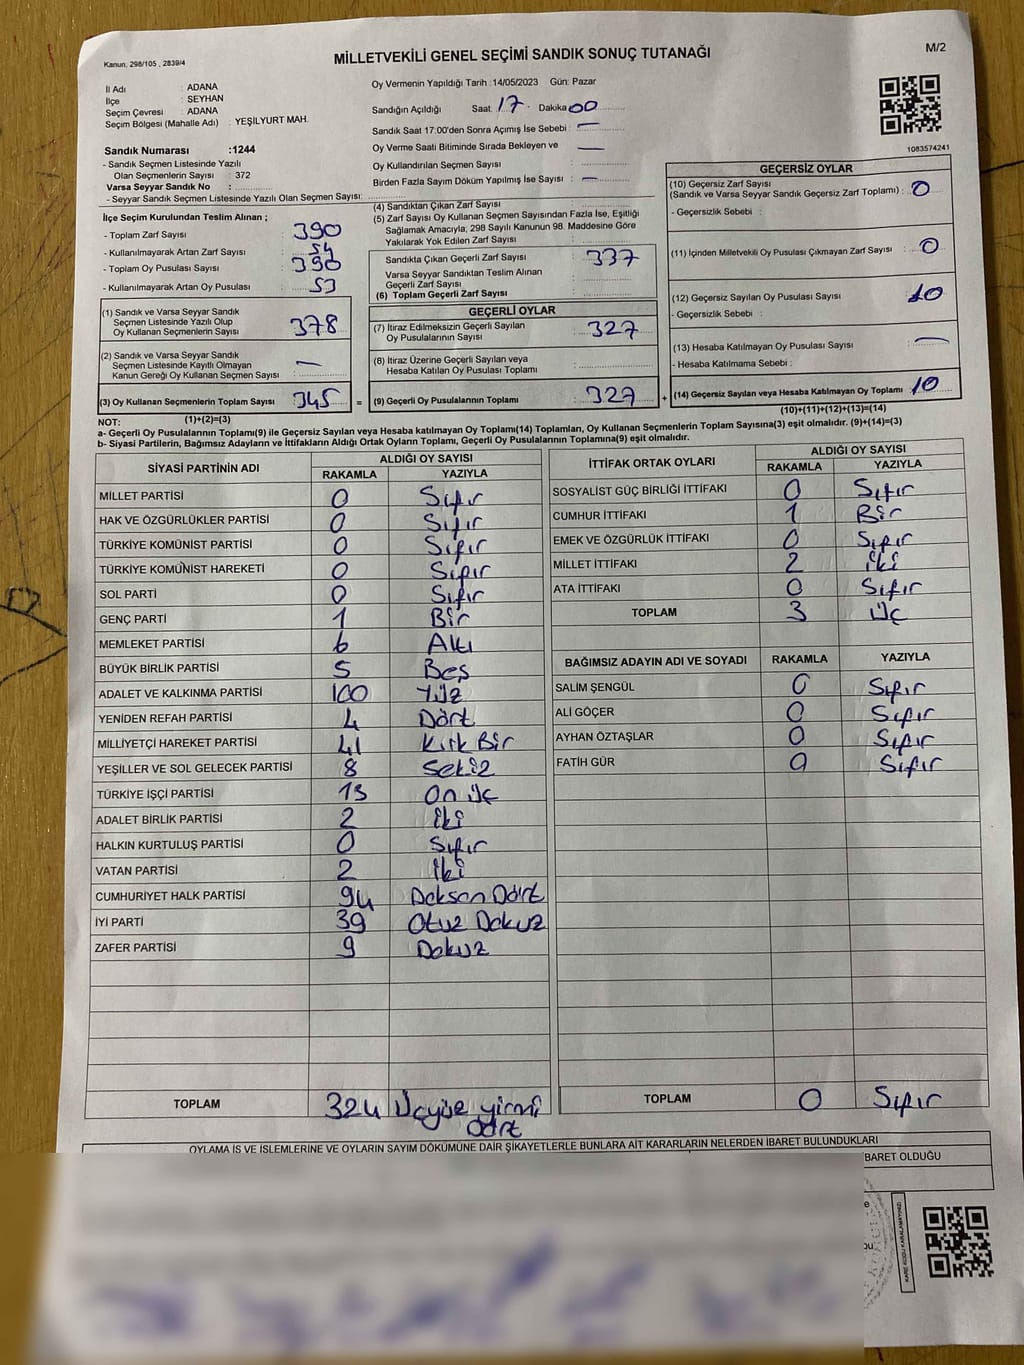 Kanun, 298/105 , 2839/4
MİLLETVEKİLİ GENEL SEÇİMİ SANDIK SONUÇ TUTANAĞI
M/2
İl Adı : ADANA
İlçe : SEYHAN
Seçim Çevresi : ADANA
Seçim Bölgesi (Mahalle Adı) : YEŞİLYURT MAH.
Sandık Numarası :1244
- Sandık Seçmen Listesinde Yazılı
Olan Seçmenlerin Sayısı : 372
Varsa Seyyar Sandık No :
- Seyyar Sandık Seçmen Listesinde Yazılı Olan Seçmen Sayısı:
Oy Vermenin Yapıldığı Tarih :14/05/2023 Gün: Pazar
Sandığın Açıldığı Saat: 17 Dakika 00
Sandık Saat 17:00'den Sonra Açımış İse Sebebi : —
Oy Verme Saati Bitiminde Sırada Bekleyen ve —
Oy Kullandırılan Seçmen Sayısı :
Birden Fazla Sayım Döküm Yapılmış İse Sayısı : —
1083574241
İlçe Seçim Kurulundan Teslim Alınan ;
- Toplam Zarf Sayısı : 390
- Kullanılmayarak Artan Zarf Sayısı : 54
- Toplam Oy Pusulası Sayısı : 390
- Kullanılmayarak Artan Oy Pusulası : 53
(1) Sandık ve Varsa Seyyar Sandık
Seçmen Listesinde Yazılı Olup
Oy Kullanan Seçmenlerin Sayısı : 378
(2) Sandık ve Varsa Seyyar Sandık
Seçmen Listesinde Kayıtlı Olmayan
Kanun Gereği Oy Kullanan Seçmen Sayısı : —
(3) Oy Kullanan Seçmenlerin Toplam Sayısı 345 =
(1)+(2)=(3)
(4) Sandıktan Çıkan Zarf Sayısı :
(5) Zarf Sayısı Oy Kullanan Seçmen Sayısından Fazla İse, Eşitliği
Sağlamak Amacıyla, 298 Sayılı Kanunun 98. Maddesine Göre
Yakılarak Yok Edilen Zarf Sayısı :
Sandıkta Çıkan Geçerli Zarf Sayısı : 337
Varsa Seyyar Sandıktan Teslim Alınan
Geçerli Zarf Sayısı :
(6) Toplam Geçerli Zarf Sayısı :
GEÇERLİ OYLAR
(7) İtiraz Edilmeksizin Geçerli Sayılan
Oy Pusulalarının Sayısı : 327
(8) İtiraz Üzerine Geçerli Sayılan veya
Hesaba Katılan Oy Pusulası Toplamı :
(9) Geçerli Oy Pusulalarının Toplamı : 327 +
GEÇERSİZ OYLAR
(10) Geçersiz Zarf Sayısı
(Sandık ve Varsa Seyyar Sandık Geçersiz Zarf Toplamı) : 0
- Geçersizlik Sebebi :
(11) İçinden Milletvekili Oy Pusulası Çıkmayan Zarf Sayısı : 0
(12) Geçersiz Sayılan Oy Pusulası Sayısı : 10
- Geçersizlik Sebebi :
(13) Hesaba Katılmayan Oy Pusulası Sayısı : —
- Hesaba Katılmama Sebebi :
(14) Geçersiz Sayılan veya Hesaba Katılmayan Oy Toplamı 10
(10)+(11)+(12)+(13)=(14)
NOT:
a- Geçerli Oy Pusulalarının Toplamı(9) ile Geçersiz Sayılan veya Hesaba katılmayan Oy Toplamı(14) Toplamları, Oy Kullanan Seçmenlerin Toplam Sayısına(3) eşit olmalıdır. (9)+(14)=(3)
b- Siyasi Partilerin, Bağımsız Adayların ve İttifakların Aldığı Ortak Oyların Toplamı, Geçerli Oy Pusulalarının Toplamına(9) eşit olmalıdır.
SİYASİ PARTİNİN ADI ALDIĞI OY SAYISI
RAKAMLA YAZIYLA
MİLLET PARTİSİ 0 Sıfır
HAK VE ÖZGÜRLÜKLER PARTİSİ 0 Sıfır
TÜRKİYE KOMÜNİST PARTİSİ 0 Sıfır
TÜRKİYE KOMÜNİST HAREKETİ 0 Sıfır
SOL PARTİ 0 Sıfır
GENÇ PARTİ 1 Bir
MEMLEKET PARTİSİ 6 Altı
BÜYÜK BİRLİK PARTİSİ 5 Beş
ADALET VE KALKINMA PARTİSİ 100 Yüz
YENİDEN REFAH PARTİSİ 4 Dört
MİLLİYETÇİ HAREKET PARTİSİ 41 Kırk Bir
YEŞİLLER VE SOL GELECEK PARTİSİ 8 Sekiz
TÜRKİYE İŞÇİ PARTİSİ 13 On üç
ADALET BİRLİK PARTİSİ 2 İki
HALKIN KURTULUŞ PARTİSİ 0 Sıfır
VATAN PARTİSİ 2 İki
CUMHURİYET HALK PARTİSİ 94 Doksan Dört
İYİ PARTİ 39 Otuz Dokuz
ZAFER PARTİSİ 9 Dokuz
TOPLAM 324 Üçyüz yirmi
dört
İTTİFAK ORTAK OYLARI ALDIĞI OY SAYISI
RAKAMLA YAZIYLA
SOSYALİST GÜÇ BİRLİĞİ İTTİFAKI 0 Sıfır
CUMHUR İTTİFAKI 1 Bir
EMEK VE ÖZGÜRLÜK İTTİFAKI 0 Sıfır
MİLLET İTTİFAKI 2 iki
ATA İTTİFAKI 0 Sıfır
TOPLAM 3 üç
BAĞIMSIZ ADAYIN ADI VE SOYADI RAKAMLA YAZIYLA
SALİM ŞENGÜL 0 Sıfır
ALİ GÖÇER 0 Sıfır
AYHAN ÖZTAŞLAR 0 Sıfır
FATİH GÜR 0 Sıfır
TOPLAM 0 Sıfır
OYLAMA İŞ VE İŞLEMLERİNE VE OYLARIN SAYIM DÖKÜMÜNE DAİR ŞİKAYETLERLE BUNLARA AİT KARARLARIN NELERDEN İBARET BULUNDUKLARI
BARET OLDUĞU
KARE KODU KARALAMAYINIZ!